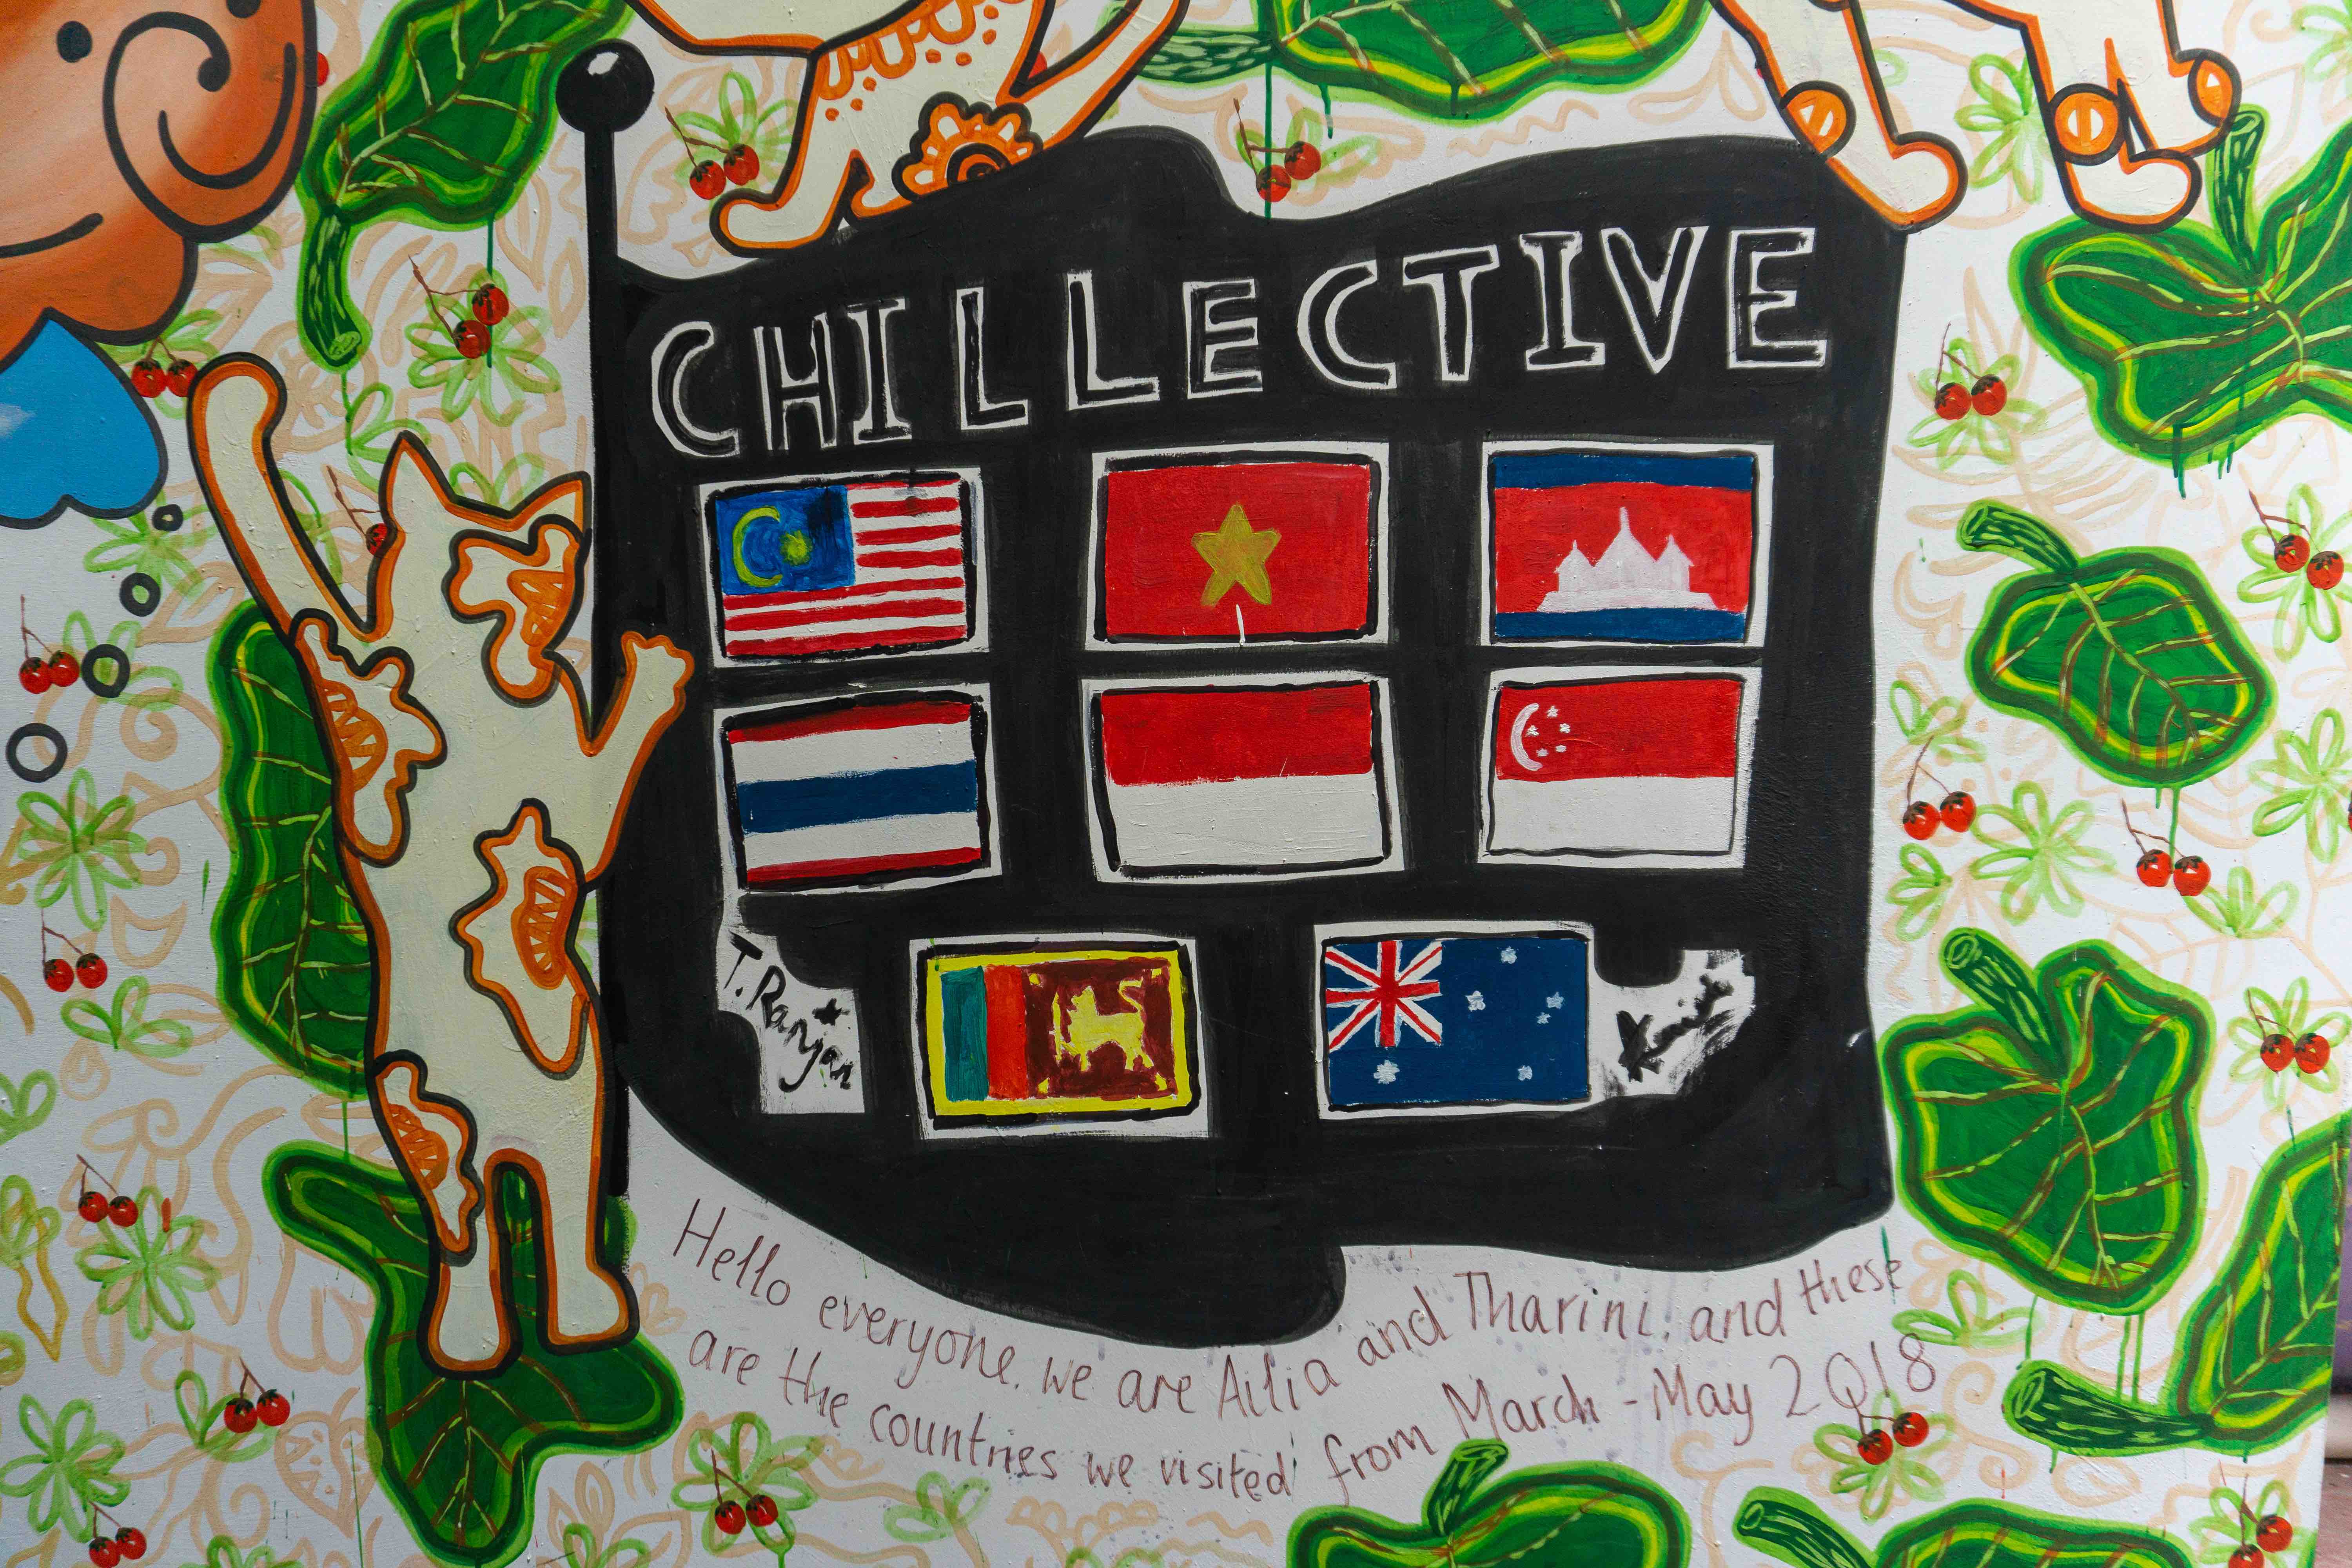 CHILLECTIVE
T. Ranjan
Hello everyone. we are Ailia and Tharini. and these
are the countries we visited from March - May 2018